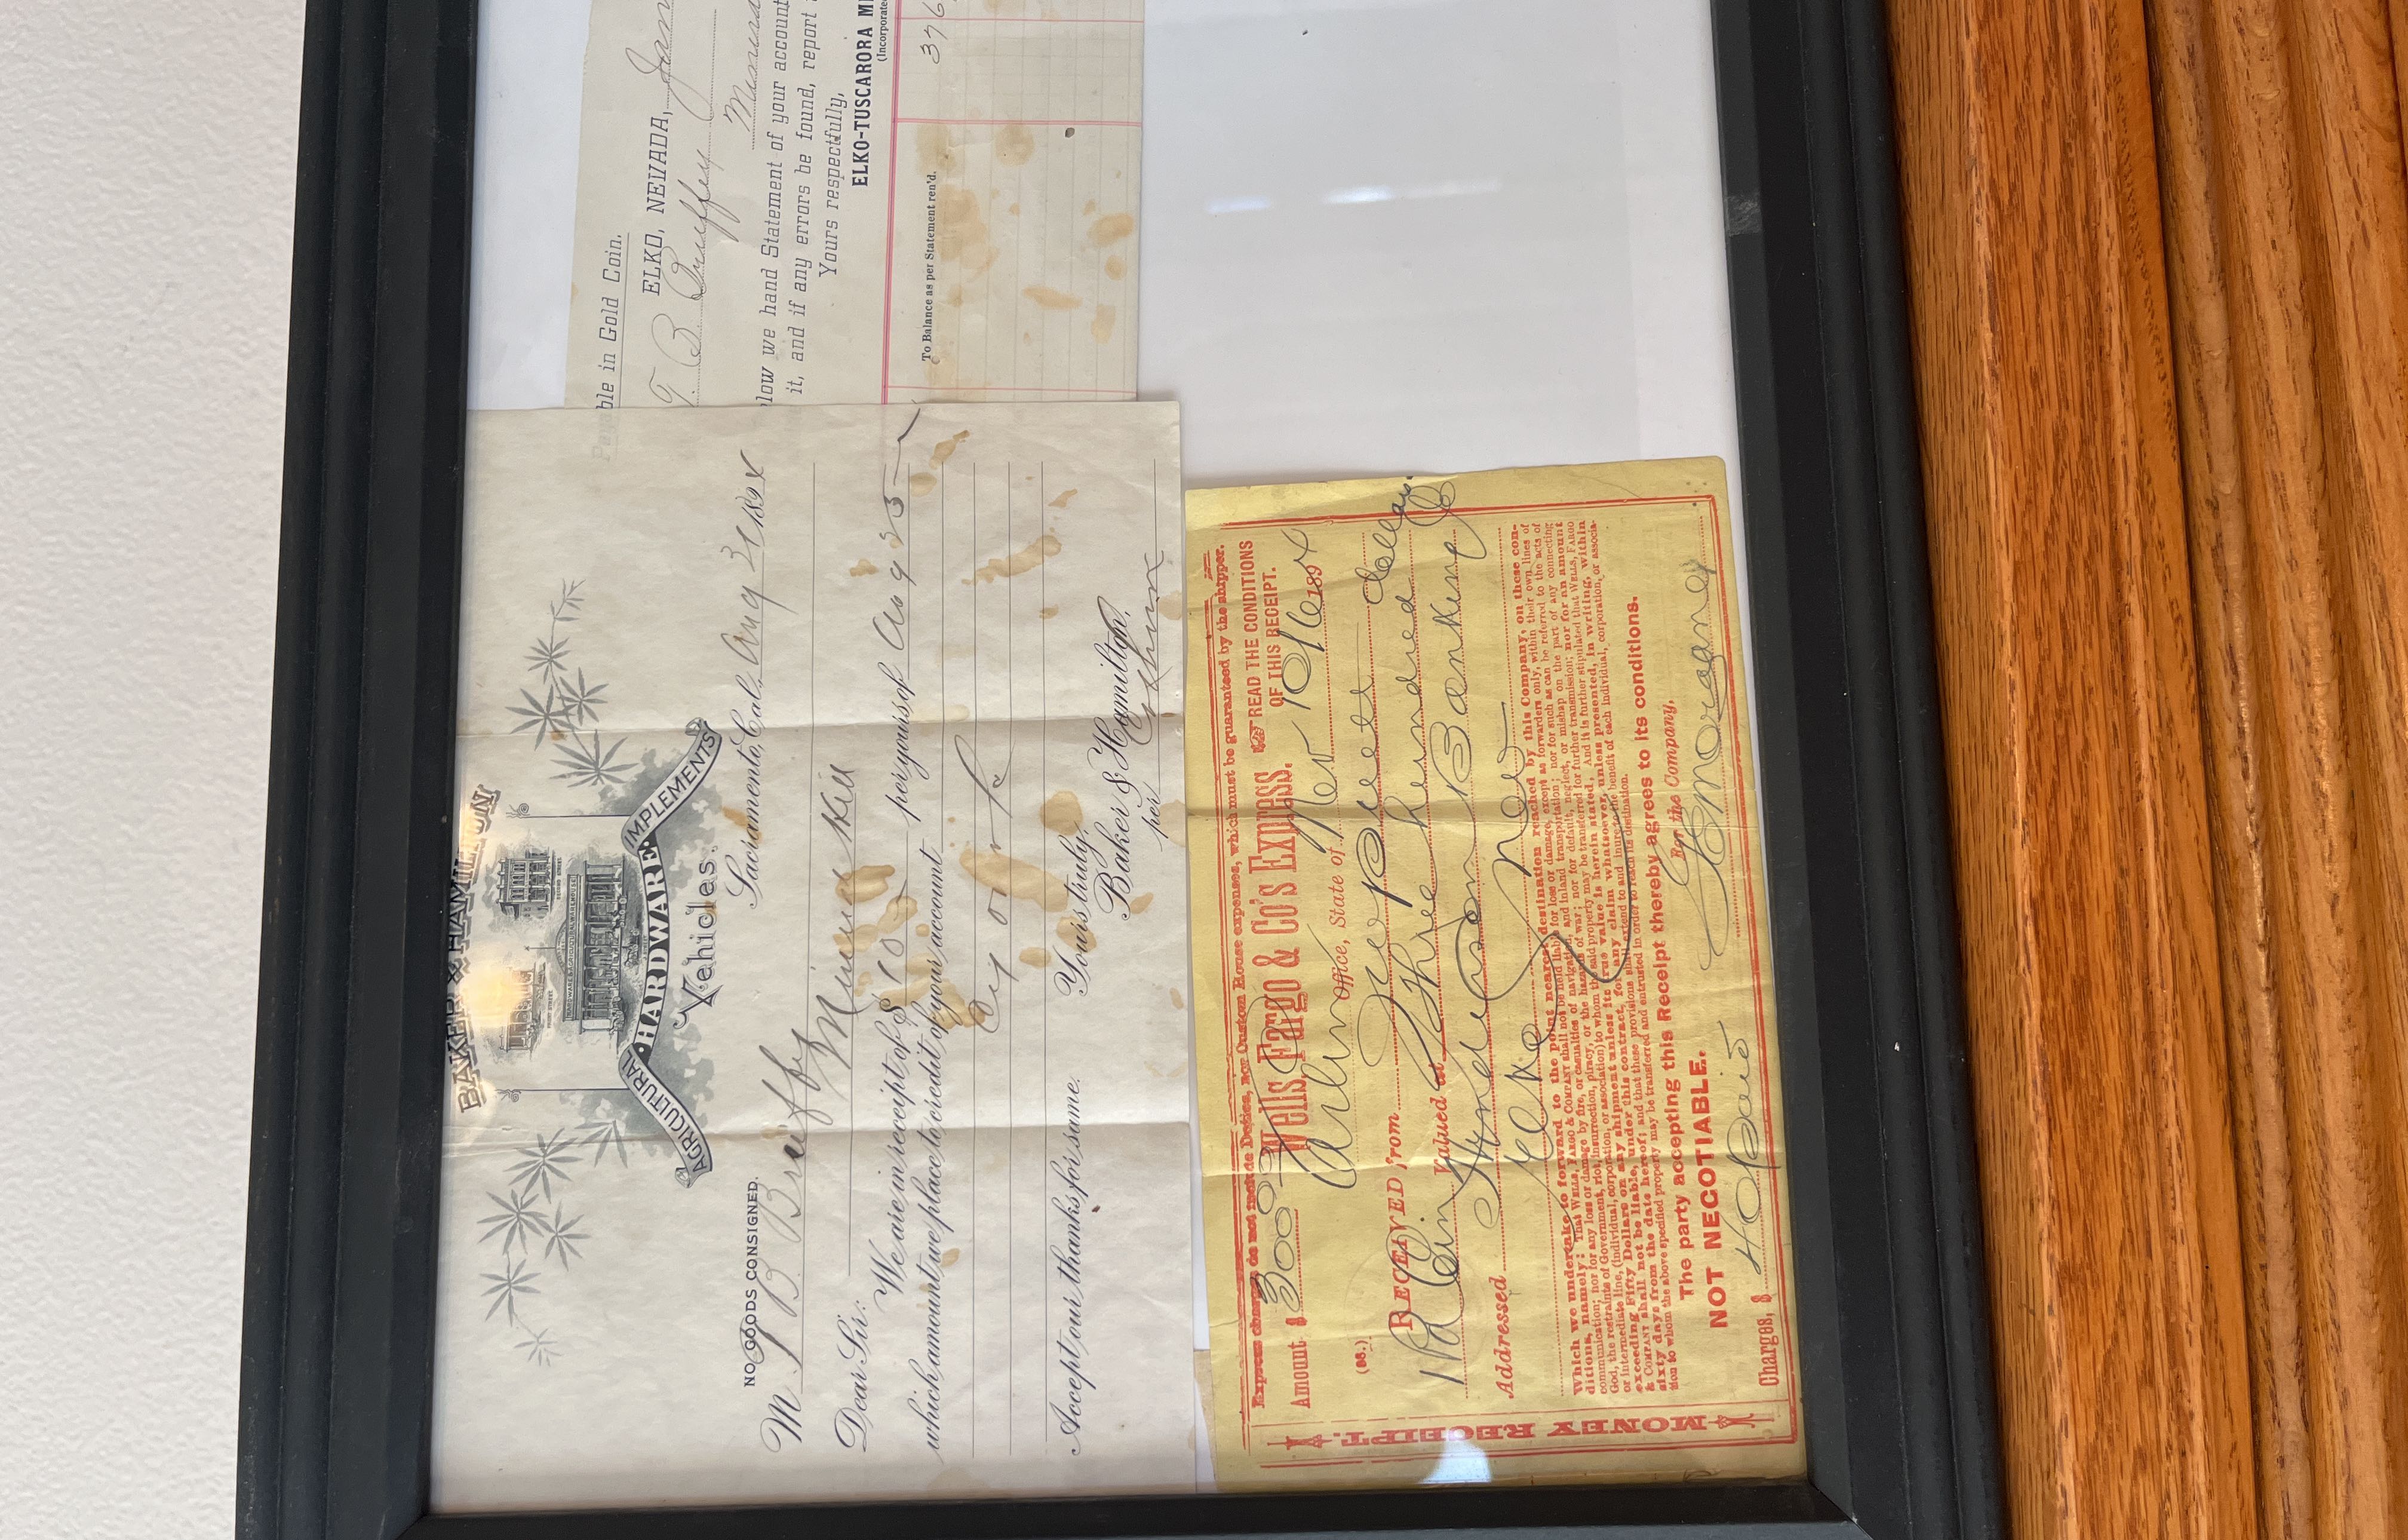 BAKER & HAMILTON
AGRICULTURAL HARDWARE IMPLEMENTS
Vehicles.
NO GOODS CONSIGNED.
Sacramento, Cal., Aug 31 189
M T B Brieffy
Mineral Hill
Dear Sir:
We are in receipt of $ per yours of Aug 25
which amount we place to credit of your account
Accept our thanks for same.
Yours truly,
Baker & Hamilton.
per
ble in Gold Coin.
ELKO, NEVADA,
T. B.
low we hand Statement of your account
it, and if any errors be found, report
Yours respectfully,
ELKO-TUSCARORA
(Incorporated
To Balance as per Statement ren'd.
376
MONEY RECEIPT.
Express charges do not include Duties, nor Custom House expenses, which must be guaranteed by the shipper.
Amount $ 300 Wells, Fargo & Co's Express. READ THE CONDITIONS
OF THIS RECEIPT.
Office, State of Nev 10/6 189
RECEIVED from
Valued at Three hundred dollars
Addressed Henderson Banking Co
Elko Nev
Which we undertake to forward to the point nearest destination reached by this Company, on these con-
ditions, namely: That WELLS, FARGO & COMPANY shall not be held liable for loss or damage, except as forwarders only, within their own lines of
communication; nor for any loss or damage by fire, or casualties of navigation and inland transportation; nor for such as can be referred to the acts of
God, the restraints of Government, riot, insurrection, piracy, or the hazards of war; nor for default, neglect, or mishap on the part of any connecting
or intermediate line, (individual, corporation, or association) to whom the said property may be transferred for further transmission; nor for an amount
exceeding Fifty Dollars on any shipment unless its true value is herein stated. And it is further stipulated that WELLS, FARGO
& COMPANY shall not be liable, under this contract, for any claim whatsoever, unless presented, in writing, within
sixty days from the date hereof; and that these provisions shall extend to and inure to the benefit of each individual, corporation, or associa-
tion to whom the above specified property may be transferred and entrusted in order to reach its destination.
The party accepting this Receipt thereby agrees to its conditions.
NOT NEGOTIABLE.
For the Company,
Charges, $ Paid